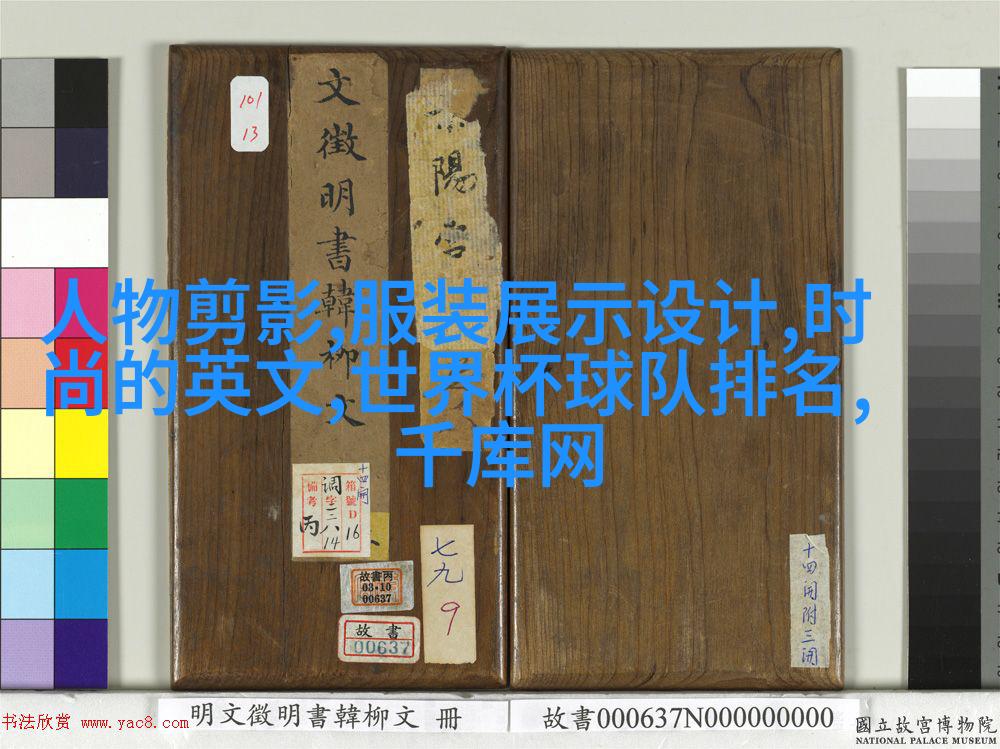 101
13
文徵明書韓柳文
陽宮
人物剪影,服装展示设计,时
尚的英文,世界杯球队排名,
千库网
十四開
箱號D
16
调字三八
14
備考
丙
故書丙
03·10
00637
故書
00637
七九
9
十四開附三開
明文徵明書韓柳文 冊
故書000637N000000000
書法欣赏 www.yac8.com
國立故宮博物院
NATIONAL PALACE MUSEUM